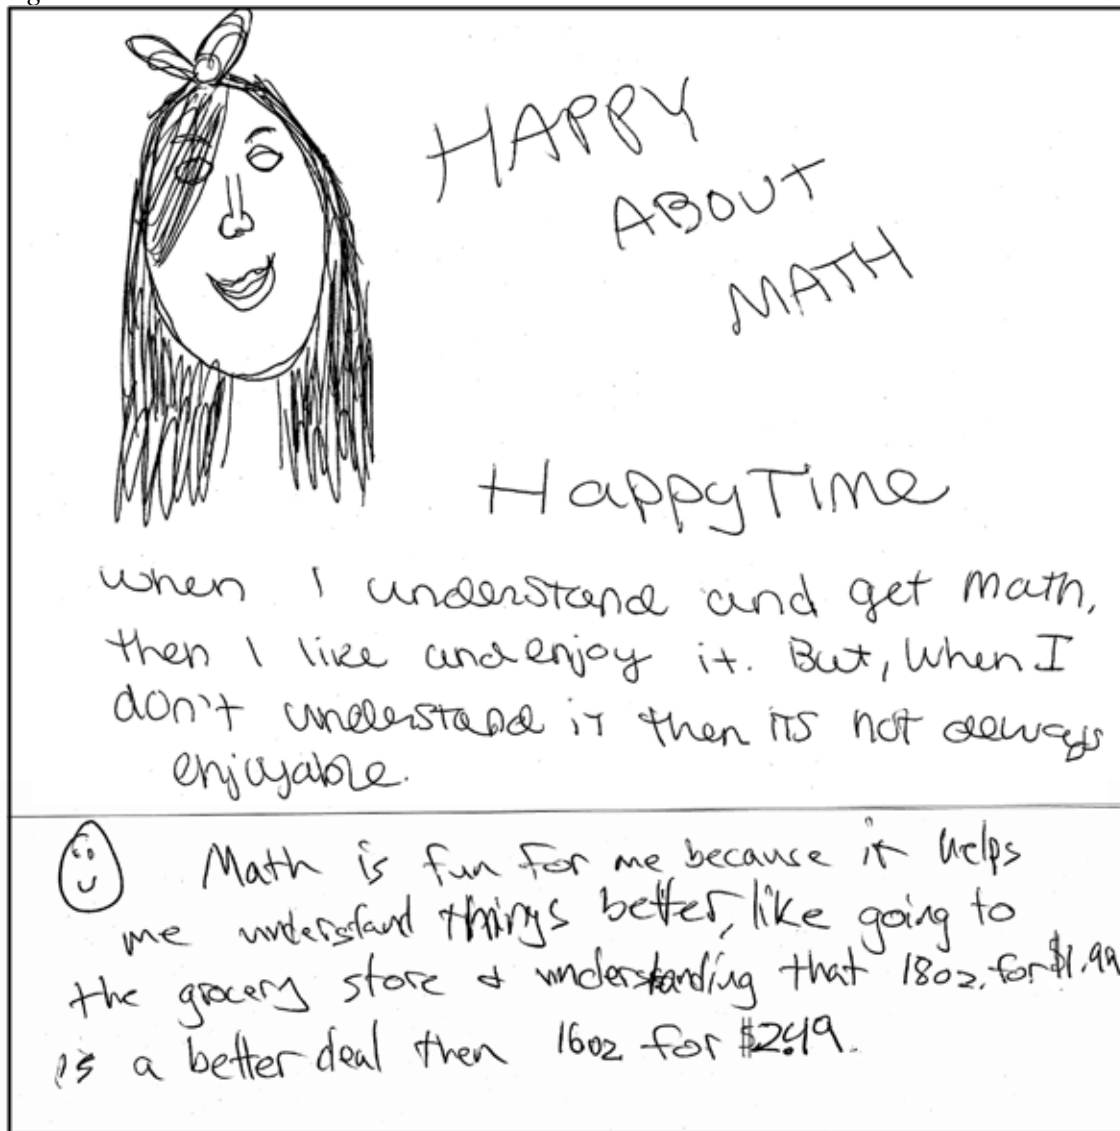 HAPPY
ABOUT
MATH
Happy Time
when I understand and get math,
then I like and enjoy it. But, when I
don't understand it then its not always
enjoyable.
Math is fun for me because it helps
me understand things better, like going to
the grocery store & understanding that 18oz. for $1.99
is a better deal then 16oz for $2.49.